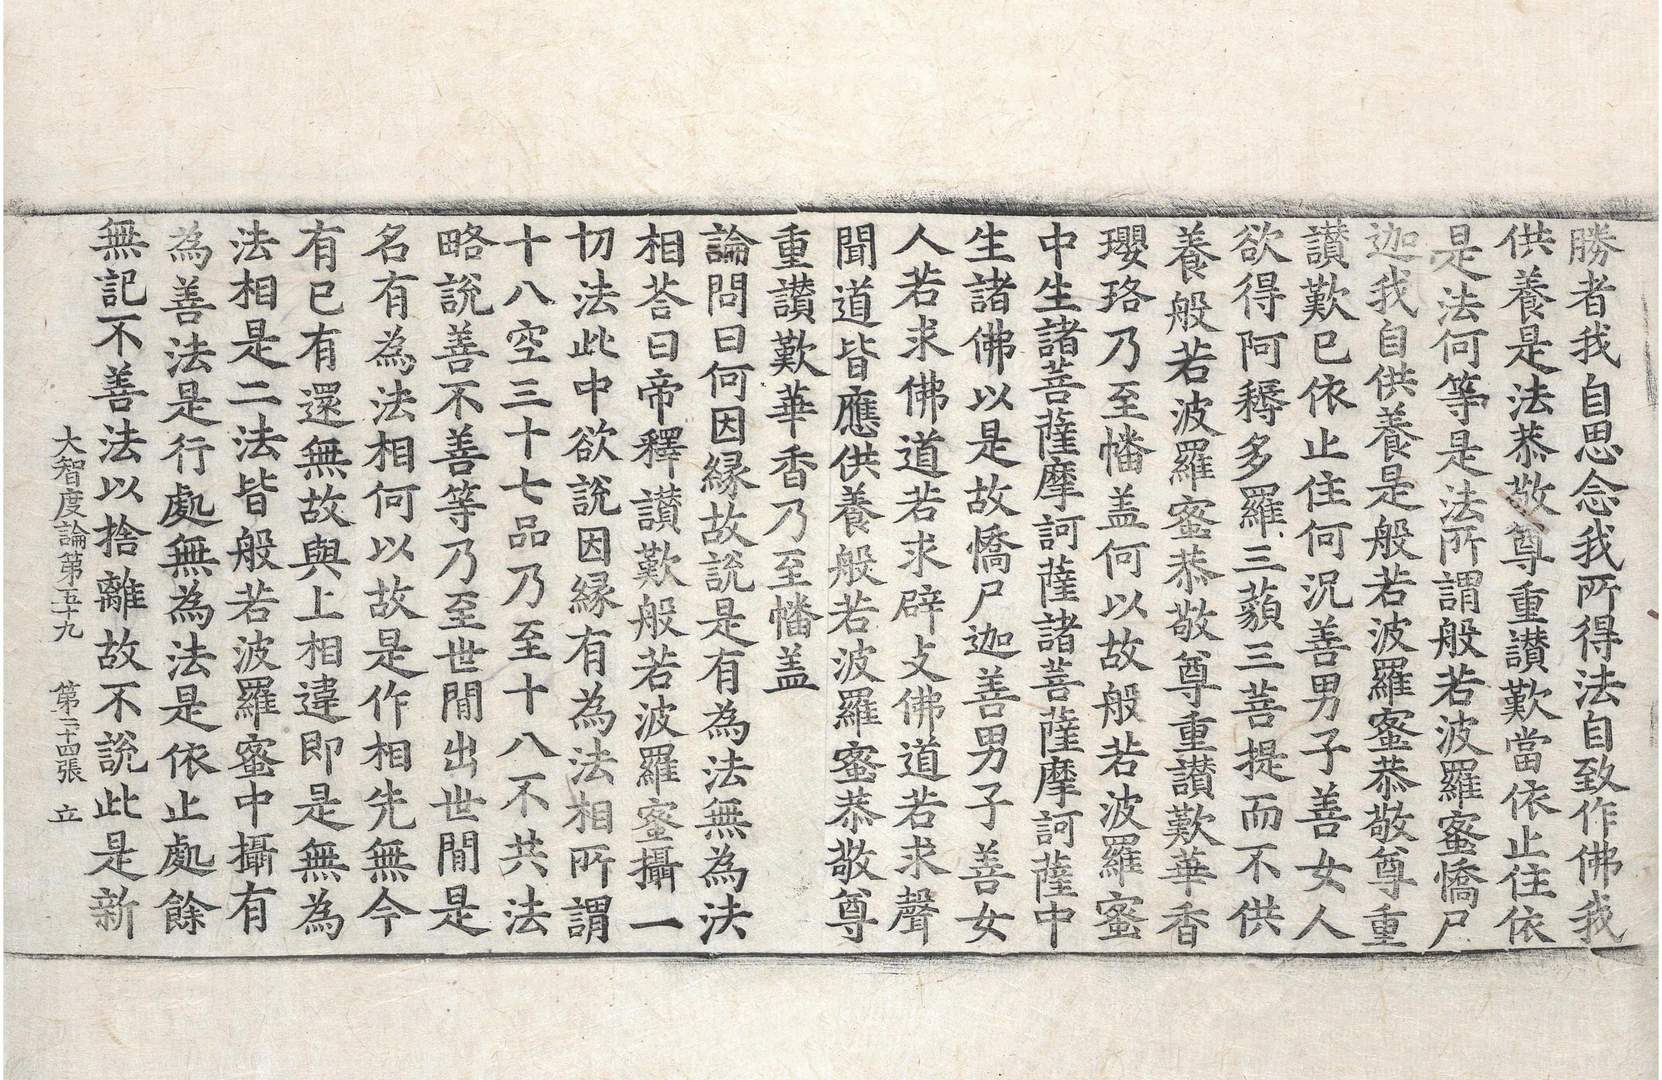 勝者我自思念我所得法自致作佛我
供養是法恭敬尊重讃歎當依止住依
是法何等是法所謂般若波羅蜜憍尸
迦我自供養是般若波羅蜜恭敬尊重
讃歎已依止住何況善男子善女人
欲得阿耨多羅三藐三菩提而不供
養般若波羅蜜恭敬尊重讃歎華香
瓔珞乃至幡盖何以故般若波羅蜜
中生諸菩薩摩訶薩諸菩薩摩訶薩中
生諸佛以是故憍尸迦善男子善女
人若求佛道若求辟支佛道若求聲
聞道皆應供養般若波羅蜜恭敬尊
重讃歎華香乃至幡盖
論問曰何因緣故說是有為法無為法
相荅曰帝釋讃歎般若波羅蜜攝一
切法此中欲說因緣有為法相所謂
十八空三十七品乃至十八不共法
略說善不善等乃至世間出世間是
名有為法相何以故是作相先無今
有已有還無故與上相違即是無為
法相是二法皆般若波羅蜜中攝有
為善法是行處無為法是依止處餘
無記不善法以捨離故不說此是新
大智度論第五十九 第二十四張 立